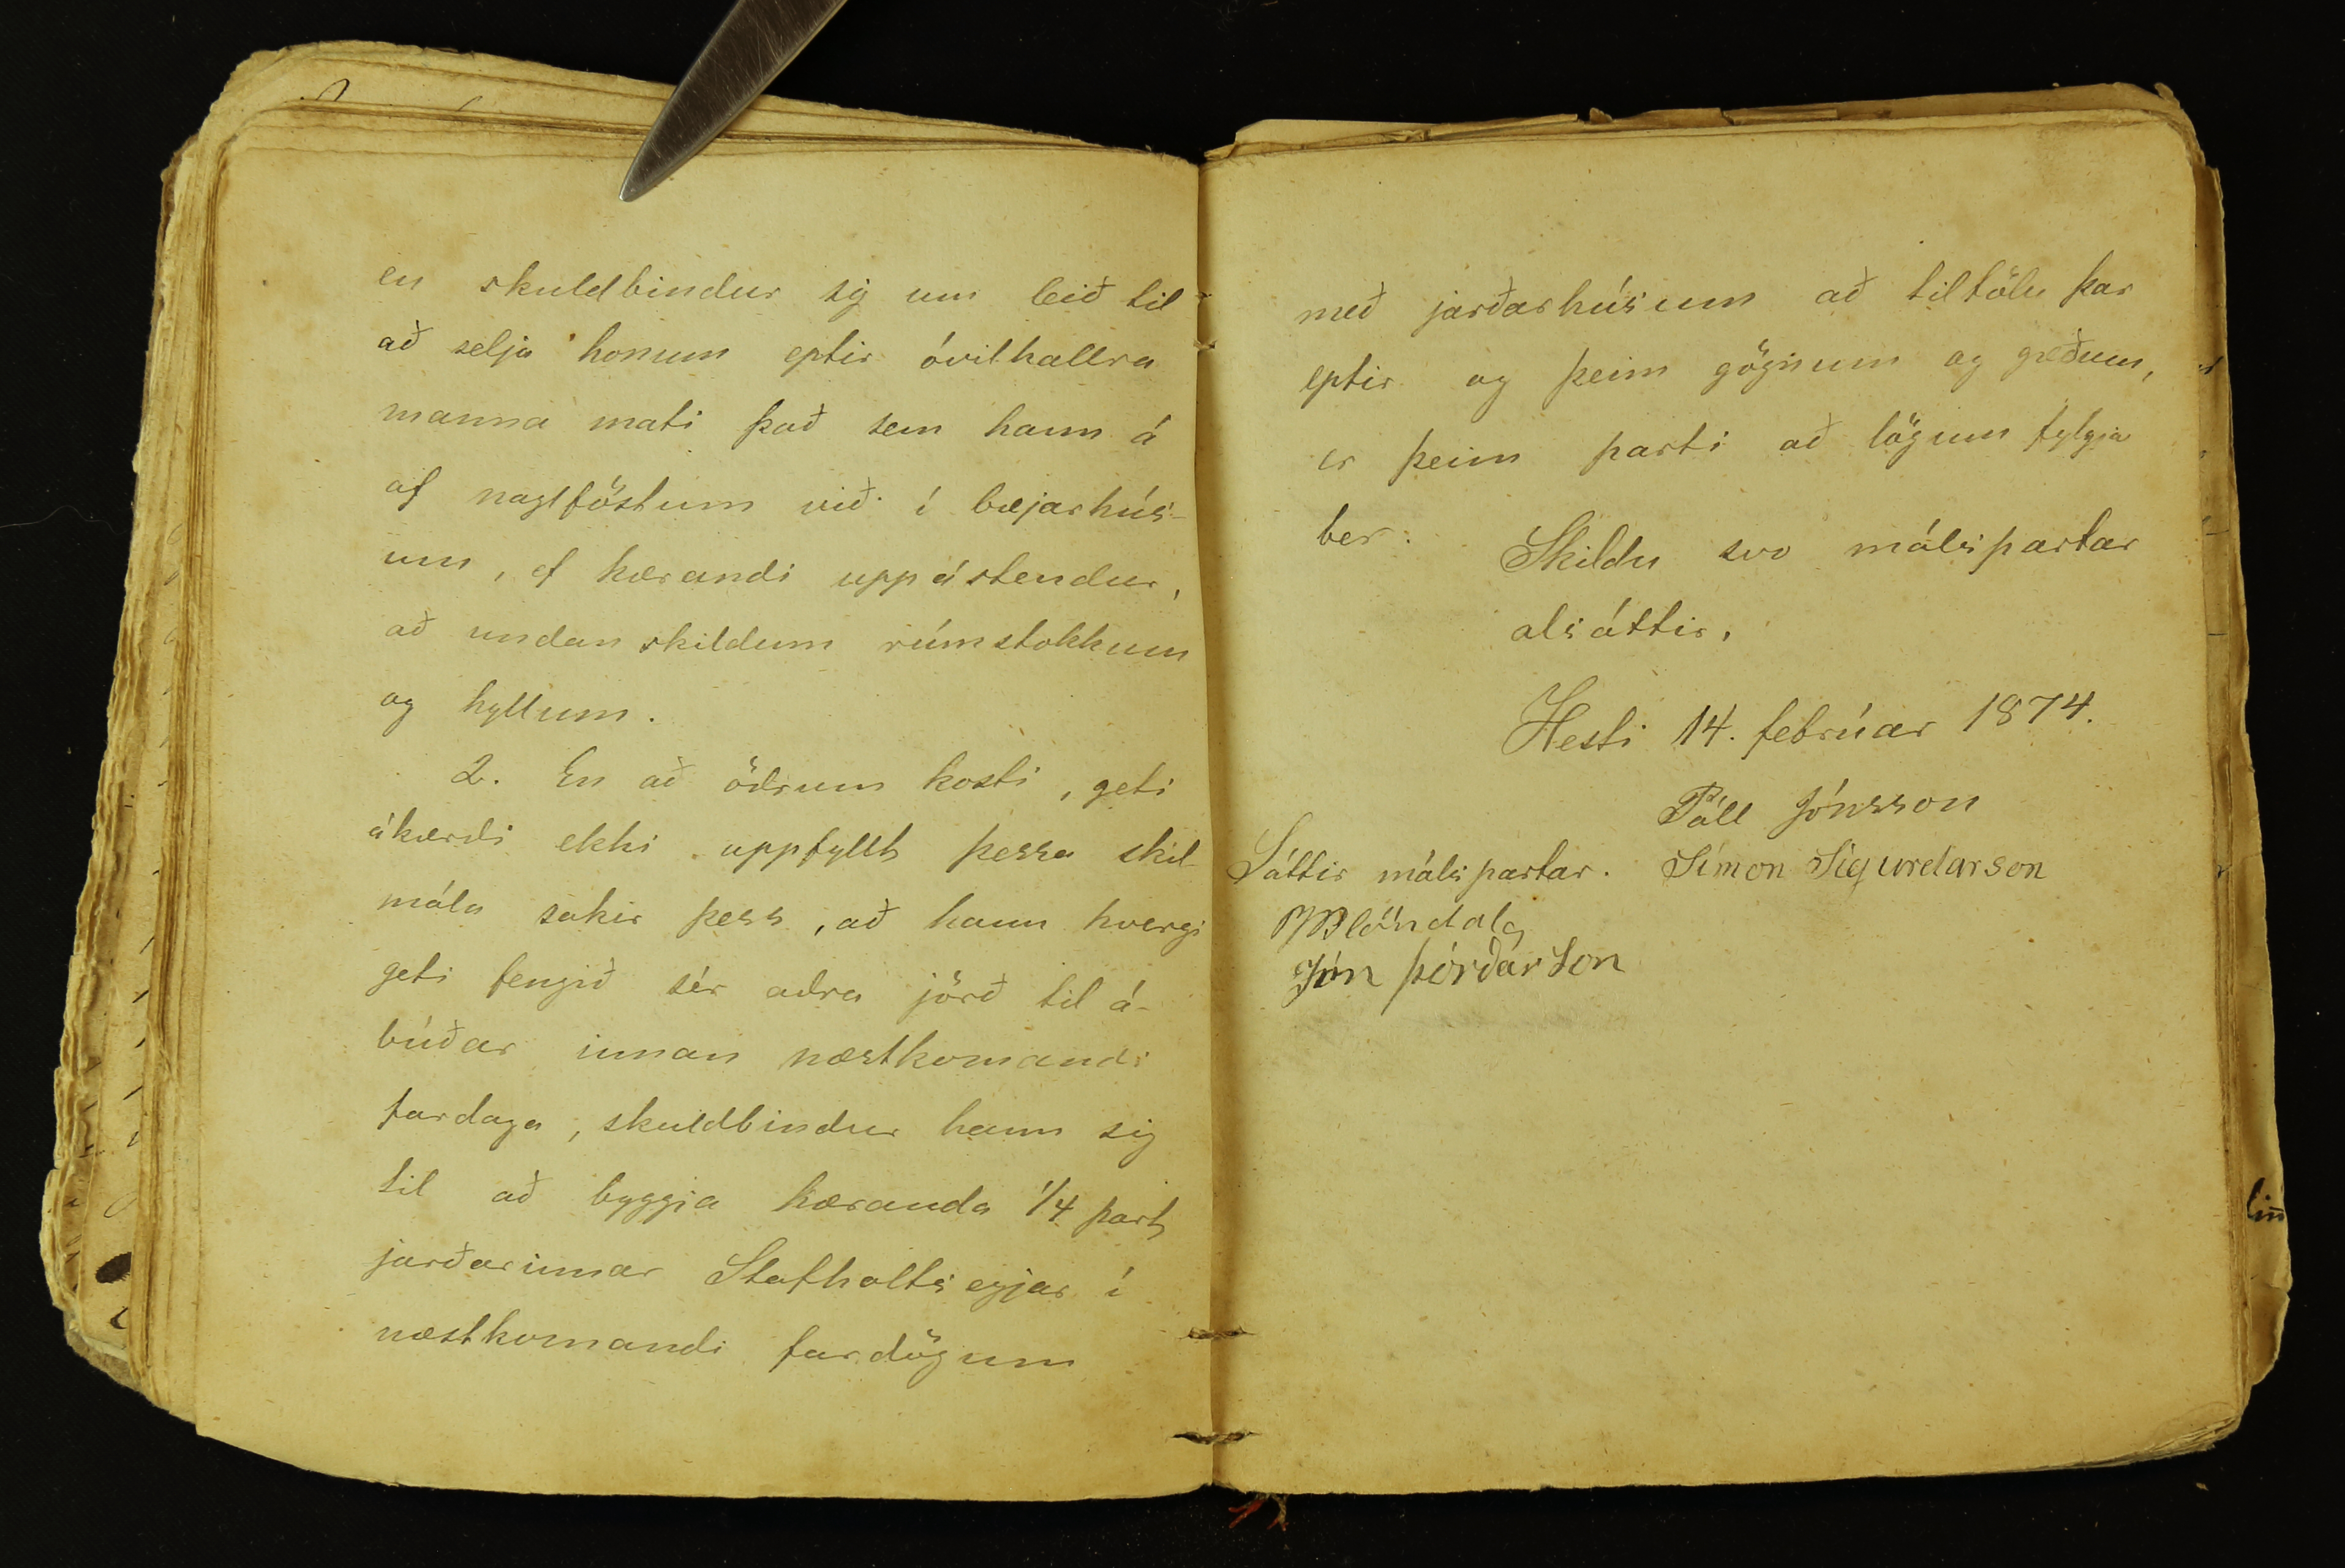 en skuldbindur sig um leið til
að selja honum eptir óvilhallra
manna mati það sem hann á
af naglföstum við í bæjarhús-
um, ef kærandi uppástendur,
að undanskildum rúmstokkum
og hyllum.
2. En að öðrum kosti, geti
ákærdi ekki uppfyllt þessa skil-
mála sakir þess, að hann hvergi
geti fengið sér aðra jörð til á-
búðar innan næstkomandi
fardaga, skuldbindur hann sig
til að byggja kæranda 1/4 part
jarðarinnar Stafholtseyjar í
næstkomandi fardögum
með jarðarhúsum að tiltölu þar
eptir og þeim gögnum og gæðum,
er þeim parti að lögum fylgja
ber.
Skildu svo málspartar
alsáttir.
Hesti 14. febrúar 1874.
Páll Jónsson
Símon Sigurdarson
Sáttir málspartar.
Blöndal
Jón Þórðarson